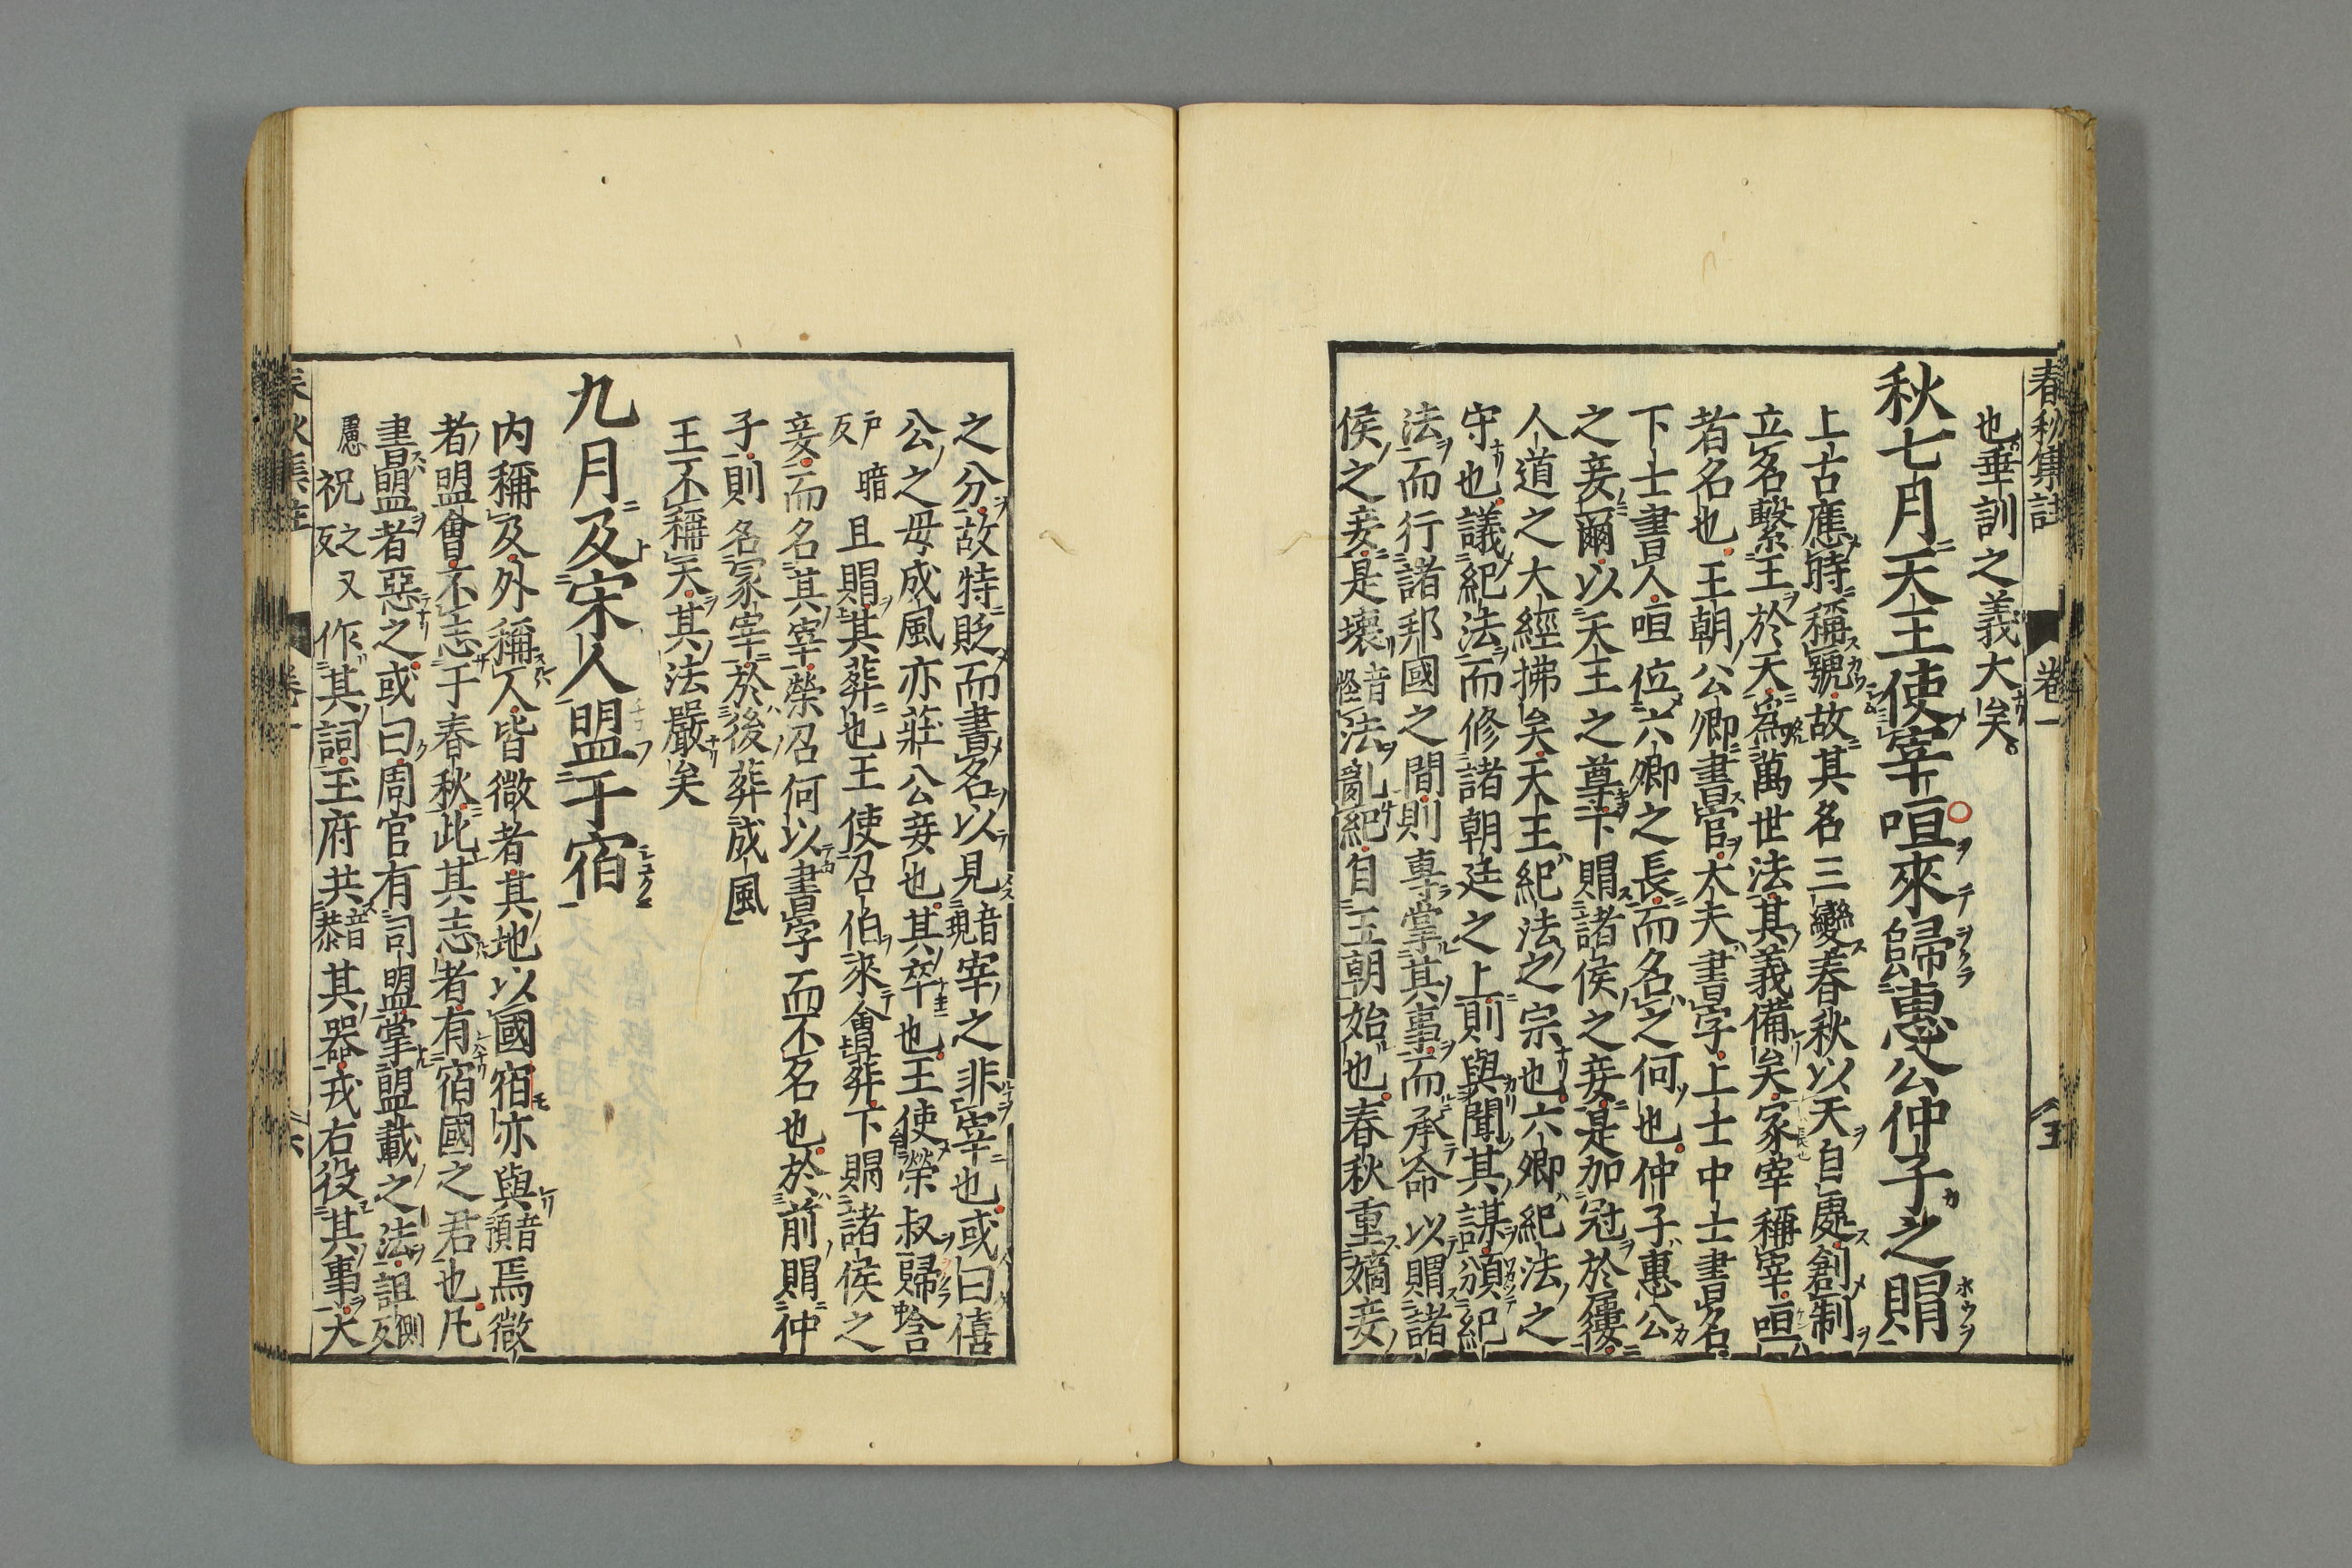 春秋集註 卷一 五
也垂訓之義大矣
秋七月天王使宰咺來歸惠公仲子之賵
上古應時稱號故其名三變春秋以天自處創制
立名繫王於天爲萬世法其義備矣冢宰稱宰咺
者名也王朝公卿書官大夫書字上士中士書名
下士書人咺位六卿之長而名之何也仲子惠公
之妾爾以天王之尊下賵諸侯之妾是加冠於屨
人道之大經拂矣天王紀法之宗也六卿紀法之
守也議紀法而修諸朝廷之上則與聞其謀頒紀
法而行諸邦國之間則專掌其事而承命以賵諸
侯之妾是壞音怪法亂紀自王朝始也春秋重嫡妾
之分故特貶而書名以見音現宰之非宰也或曰僖
公之母成風亦莊公妾也其卒也王使榮叔歸含
戶暗反且賵其葬也王使召伯來會葬下賵諸侯之
妾而名其宰榮召何以書字而不名也於前賵仲
子則名冢宰於後葬成風
王不稱天其法嚴矣
九月及宋人盟于宿
内稱及外稱人皆微者其地以國宿亦與音預焉微
者盟會不志于春秋此其志者有宿國之君也凡
書盟者惡之或曰周官有司盟掌盟載之法詛側
慮反祝之又反作其詞玉府共音恭其器戎右役其事太
春秋集註 卷一 六